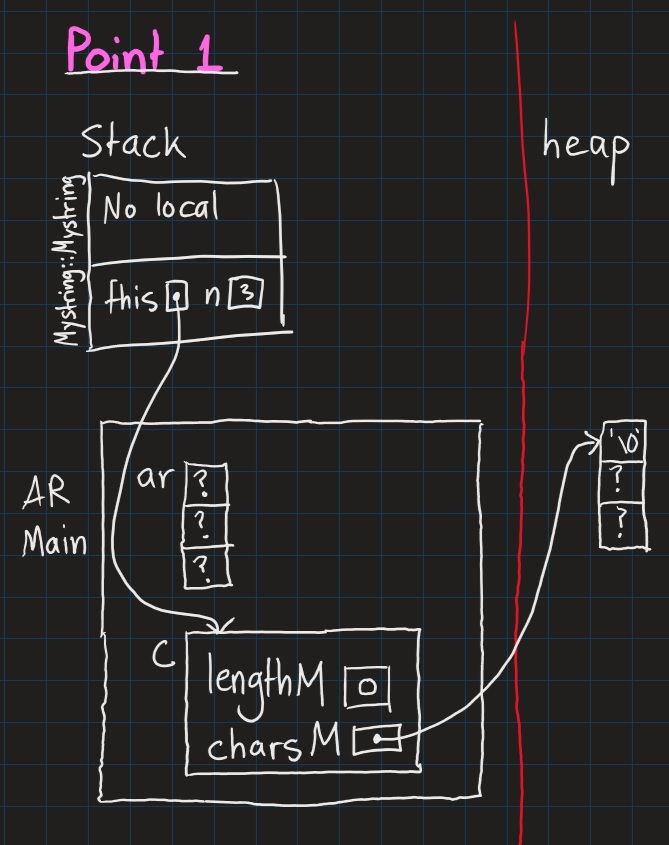 Point 1
Stack
heap
Mystring::Mystring
No local
this n 3
AR
Main
ar ?
?
?
'\0'
?
?
C
lengthM 0
charsM